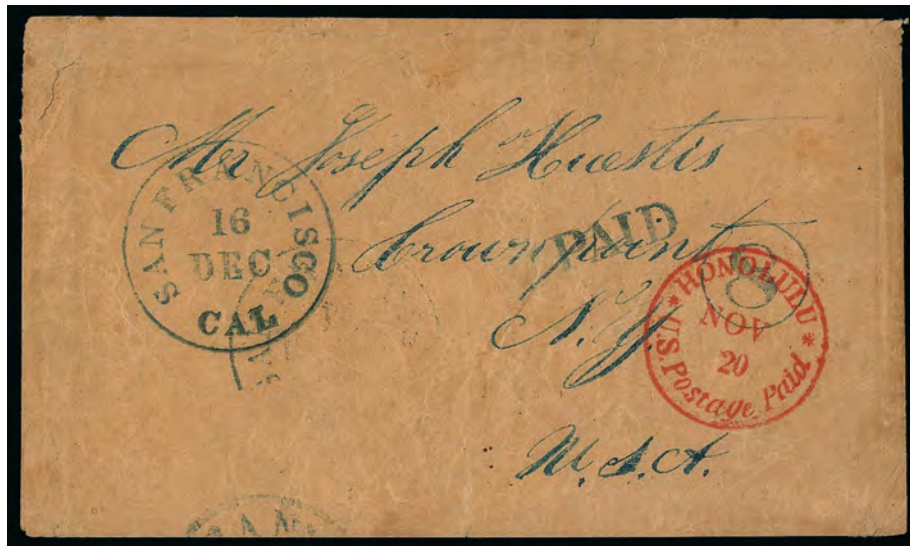 Mr Joseph Huestis
Crownpoint
N.Y.
U.S.A.
SAN FRANCISCO
16
DEC
CAL
PAID
8
* HONOLULU *
NOV
20
U.S. Postage Paid
SAN